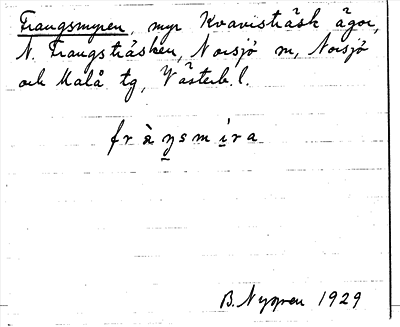 Frangsmyren, myr Kvavisträsk ägor,
N. Frangsträsken, Norsjö sn, Norsjö
och Malå tg, Västerb. l.
fràŋsmíra
B. Nygren 1929